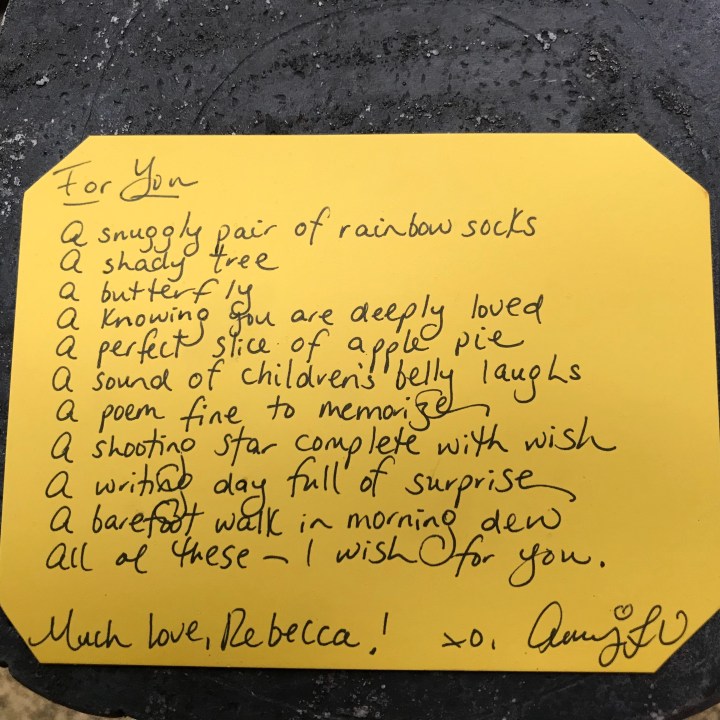 For You
A snuggly pair of rainbow socks
A shady tree
A butterfly
A knowing you are deeply loved
A perfect slice of apple pie
A sound of children's belly laughs
A poem fine to memorize
A shooting star complete with wish
A writing day full of surprise
A barefoot walk in morning dew
All of these – I wish for you.
Much love, Rebecca! xo, Amy LV